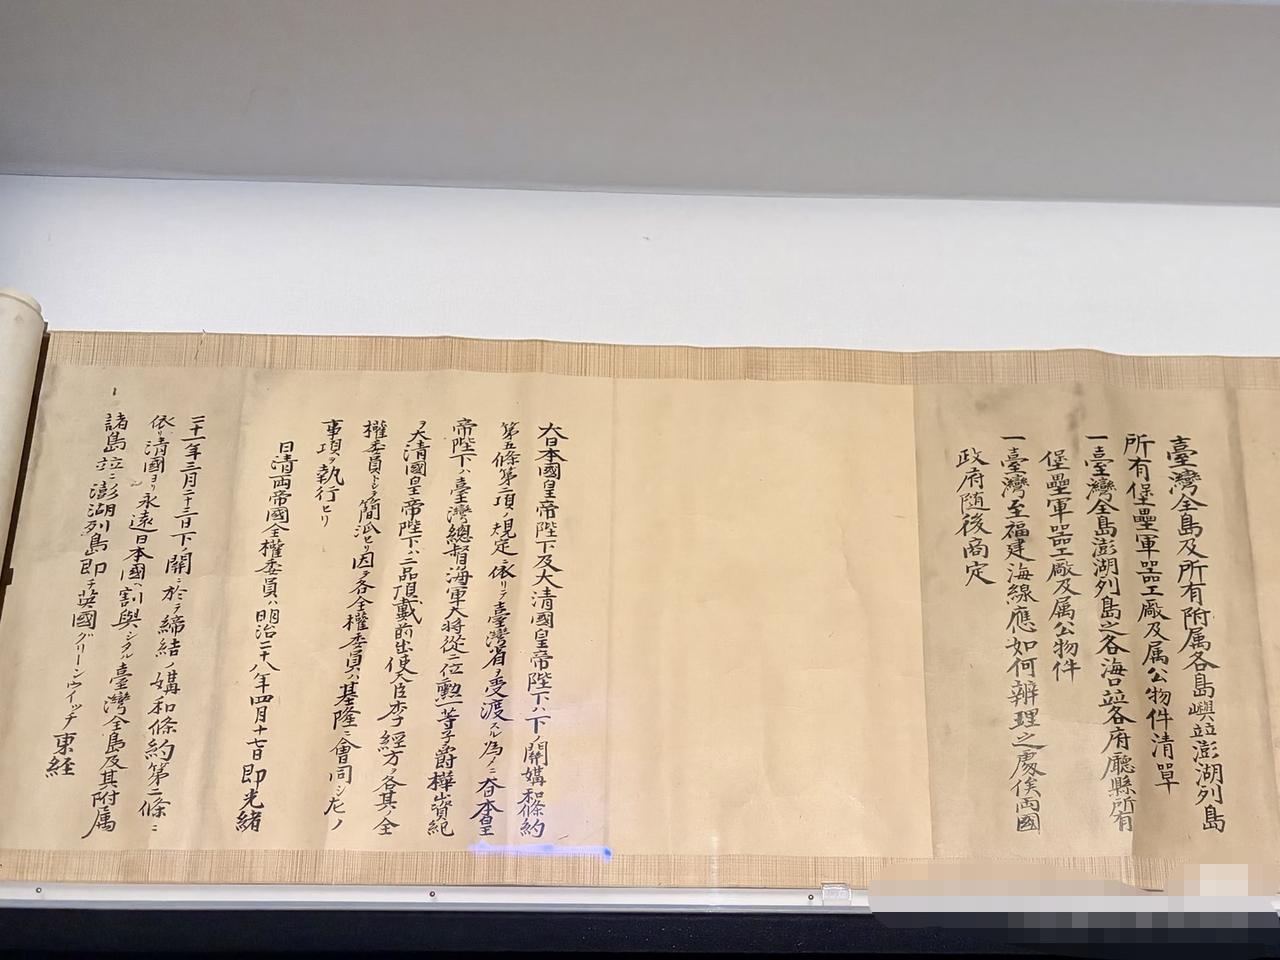 臺灣全島及所有附属各島嶼竝澎湖列島
所有堡壘軍器工廠及属公物件清單
一臺灣全島澎湖列島之各海口竝各府廳縣所有
堡壘軍器工廠及属公物件
一臺灣至福建海線應如何辨理之處俟両國
政府随後商定
大日本國皇帝陛下及大清國皇帝陛下ハ下ノ關媾和條約
第五條第二項ノ規定ニ依リテ臺灣省ヲ受渡スル為メニ大日本皇
帝陛下ハ臺灣總督海軍大将從二位勲一等子爵樺山資紀
ヲ大清國皇帝陛下ハ二品頂戴前出使大臣李經方ヲ各其ノ全
權委員トシテ簡派セリ因テ各全權委員ハ基隆ニ會同シ左ノ
事項ヲ執行セリ
日清両帝國全權委員ハ明治二十八年四月十七日即光緒
二十一年三月二十三日下ノ關ニ於テ締結ノ媾和條約第二條ニ
依リ清國ヨリ永遠日本國ヘ割與シタル臺灣全島及其附属
諸島竝ニ澎湖列島即チ英國グリーンウイッチ東経